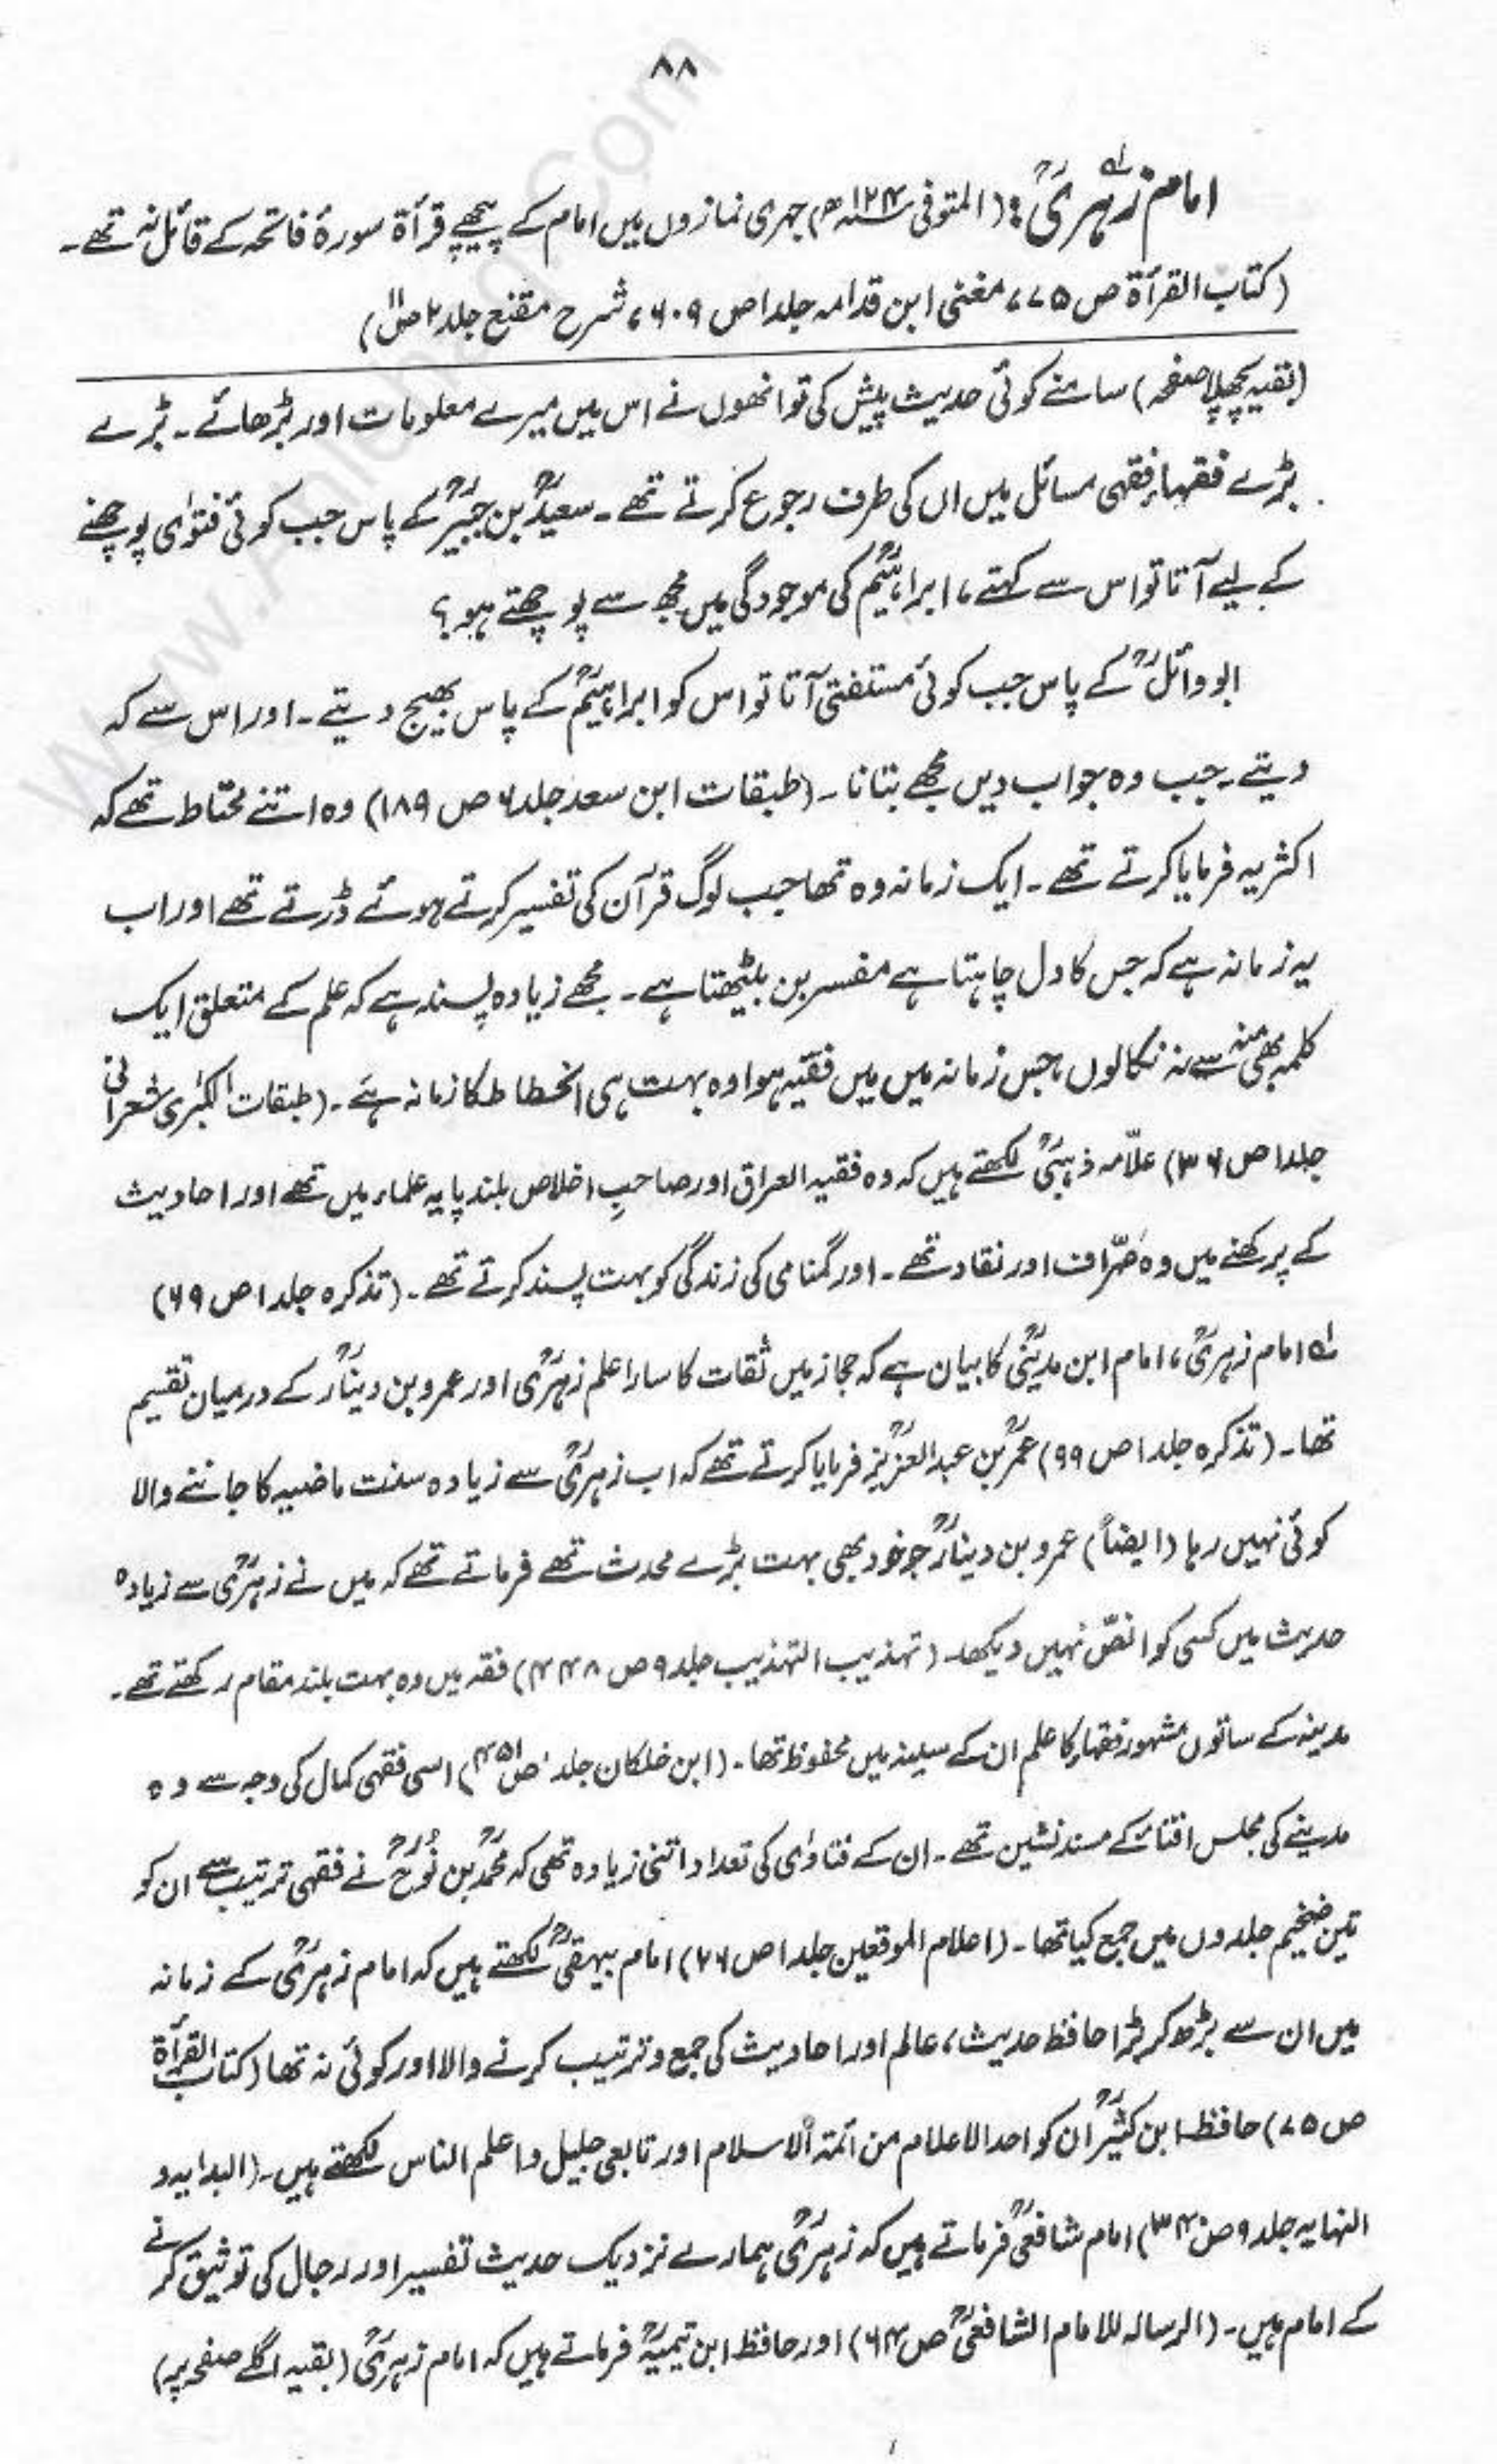 ۸۸
امام زہریؒ لہ: (المتوفی ۱۲۴ھ) جہری نمازوں میں امام کے پیچھے قرأۃ سورۂ فاتحہ کے قائل نہ تھے۔
(کتاب القرأۃ ص ۷۵، مغنی ابن قدامہ جلد ۱ ص ۶۰۹، شرح مقنع جلد ۲ ص ۱۱)
(بقیہ پچھلا صفحہ) سامنے کوئی حدیث پیش کی تو انھوں نے اس میں میرے معلومات اور بڑھائے۔ بڑے
بڑے فقہاء فقہی مسائل میں ان کی طرف رجوع کرتے تھے۔ سعیدؒ بن جبیرؒ کے پاس جب کوئی فتوٰی پوچھنے
کے لیے آتا تو اس سے کہتے، ابراہیمؒ کی موجودگی میں مجھ سے پوچھتے ہو؟
ابو وائلؒ کے پاس جب کوئی مستفتی آتا تو اس کو ابراہیمؒ کے پاس بھیج دیتے۔ اور اس سے کہ
دیتے۔ جب وہ جواب دیں مجھے بتانا۔ (طبقات ابن سعد جلد ۶ ص ۱۸۹) وہ اتنے محتاط تھے کہ
اکثر یہ فرمایا کرتے تھے۔ ایک زمانہ وہ تھا جب لوگ قرآن کی تفسیر کرتے ہوئے ڈرتے تھے اور اب
یہ زمانہ ہے کہ جس کا دل چاہتا ہے مفسر بن بیٹھتا ہے۔ مجھے زیادہ پسند ہے کہ علم کے متعلق ایک
کلمہ بھی منہ سے نہ نکالوں، جس زمانہ میں میں فقیہ ہوا وہ بہت ہی انحطاط کا زمانہ ہے۔ (طبقات الکبرٰی شعرانی
جلد ۱ ص ۳۶) علّامہ ذہبیؒ لکھتے ہیں کہ وہ فقیہ العراق اور صاحبِ اخلاص بلند پایہ علماء میں تھے اور احادیث
کے پرکھنے میں وہ صرّاف اور نقاد تھے۔ اور گمنامی کی زندگی کو بہت پسند کرتے تھے۔ (تذکرہ جلد ۱ ص ۶۹)
لہ امام زہریؒ، امام ابن مدینیؒ کا بیان ہے کہ حجاز میں ثقات کا سارا علم زہریؒ اور عمرو بن دینارؒ کے درمیان تقسیم
تھا۔ (تذکرہ جلد ۱ ص ۹۹) عمرؒ بن عبدالعزیزؒ فرمایا کرتے تھے کہ اب زہریؒ سے زیادہ سنت ماضیہ کا جاننے والا
کوئی نہیں رہا (ایضاً) عمرو بن دینارؒ جو خود بھی بہت بڑے محدث تھے فرماتے تھے کہ میں نے زہریؒ سے زیادہ
حدیث میں کسی کو انصّ نہیں دیکھا۔ (تہذیب التہذیب جلد ۹ ص ۴۴۸) فقہ میں وہ بہت بلند مقام رکھتے تھے۔
مدینہ کے ساتوں مشہور فقہاء کا علم ان کے سینہ میں محفوظ تھا۔ (ابن خلکان جلد ۱ ص ۴۵۱) اسی فقہی کمال کی وجہ سے وہ
مدینے کی مجلس افتاء کے مسند نشین تھے۔ ان کے فتاوٰی کی تعداد اتنی زیادہ تھی کہ محمدؒ بن نوحؒ نے فقہی ترتیب سے ان کو
تین ضخیم جلدوں میں جمع کیا تھا۔ (اعلام الموقعین جلد ۱ ص ۲۶) امام بیہقیؒ لکھتے ہیں کہ امام زہریؒ کے زمانہ
میں ان سے بڑھ کر بڑا حافظ حدیث، عالم اور احادیث کی جمع و ترتیب کرنے والا اور کوئی نہ تھا (کتاب القرأۃ
ص ۷۵) حافظ ابن کثیرؒ ان کو احد الاعلام من ائمۃ الاسلام اور تابعی جلیل و اعلم الناس لکھتے ہیں۔ (البدایہ و
النہایہ جلد ۹ ص ۳۴۰) امام شافعیؒ فرماتے ہیں کہ زہریؒ ہمارے نزدیک حدیث تفسیر اور رجال کی توثیق کرنے
کے امام ہیں۔ (الرسالہ للامام الشافعیؒ ص ۶۴) اور حافظ ابن تیمیہؒ فرماتے ہیں کہ امام زہریؒ (بقیہ اگلے صفحہ پر)